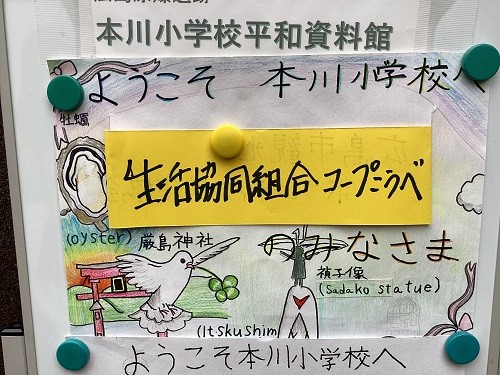 本川小学校平和資料館
ようこそ 本川小学校へ
牡蠣
生活協同組合コープこうべ
のみなさま
(oyster)
厳島神社
禎子像
(Sadako statue)
(Itskushim
ようこそ本川小学校へ